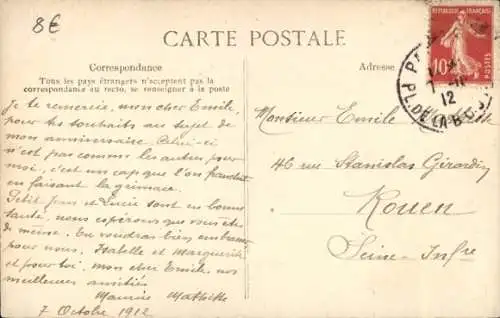 8€
CARTE POSTALE
RÉPUBLIQUE FRANÇAISE
10
POSTES
Correspondance
Tous les pays étrangers n'acceptent pas la
correspondance au recto, se renseigner à la poste
Adresse
12
PL. DE LA B
Je te remercie, mon cher Emile,
pour tes souhaits au sujet de
mon anniversaire. Celui-ci
n'est pas comme les autres pour
moi, c'est un cap que l'on franchit
en faisant la grimace.
Petit Jean et Lucie sont en bonne
santé, nous espérons que vous êtes
de même. Tu voudras bien embrasser
pour nous, Isabelle et Marguerite
et pour toi, mon cher Emile, nos
meilleures amitiés
Maurice
7 Octobre 1912
Monsieur Emile
46 rue Stanislas Girardin
Rouen
Seine-Infre